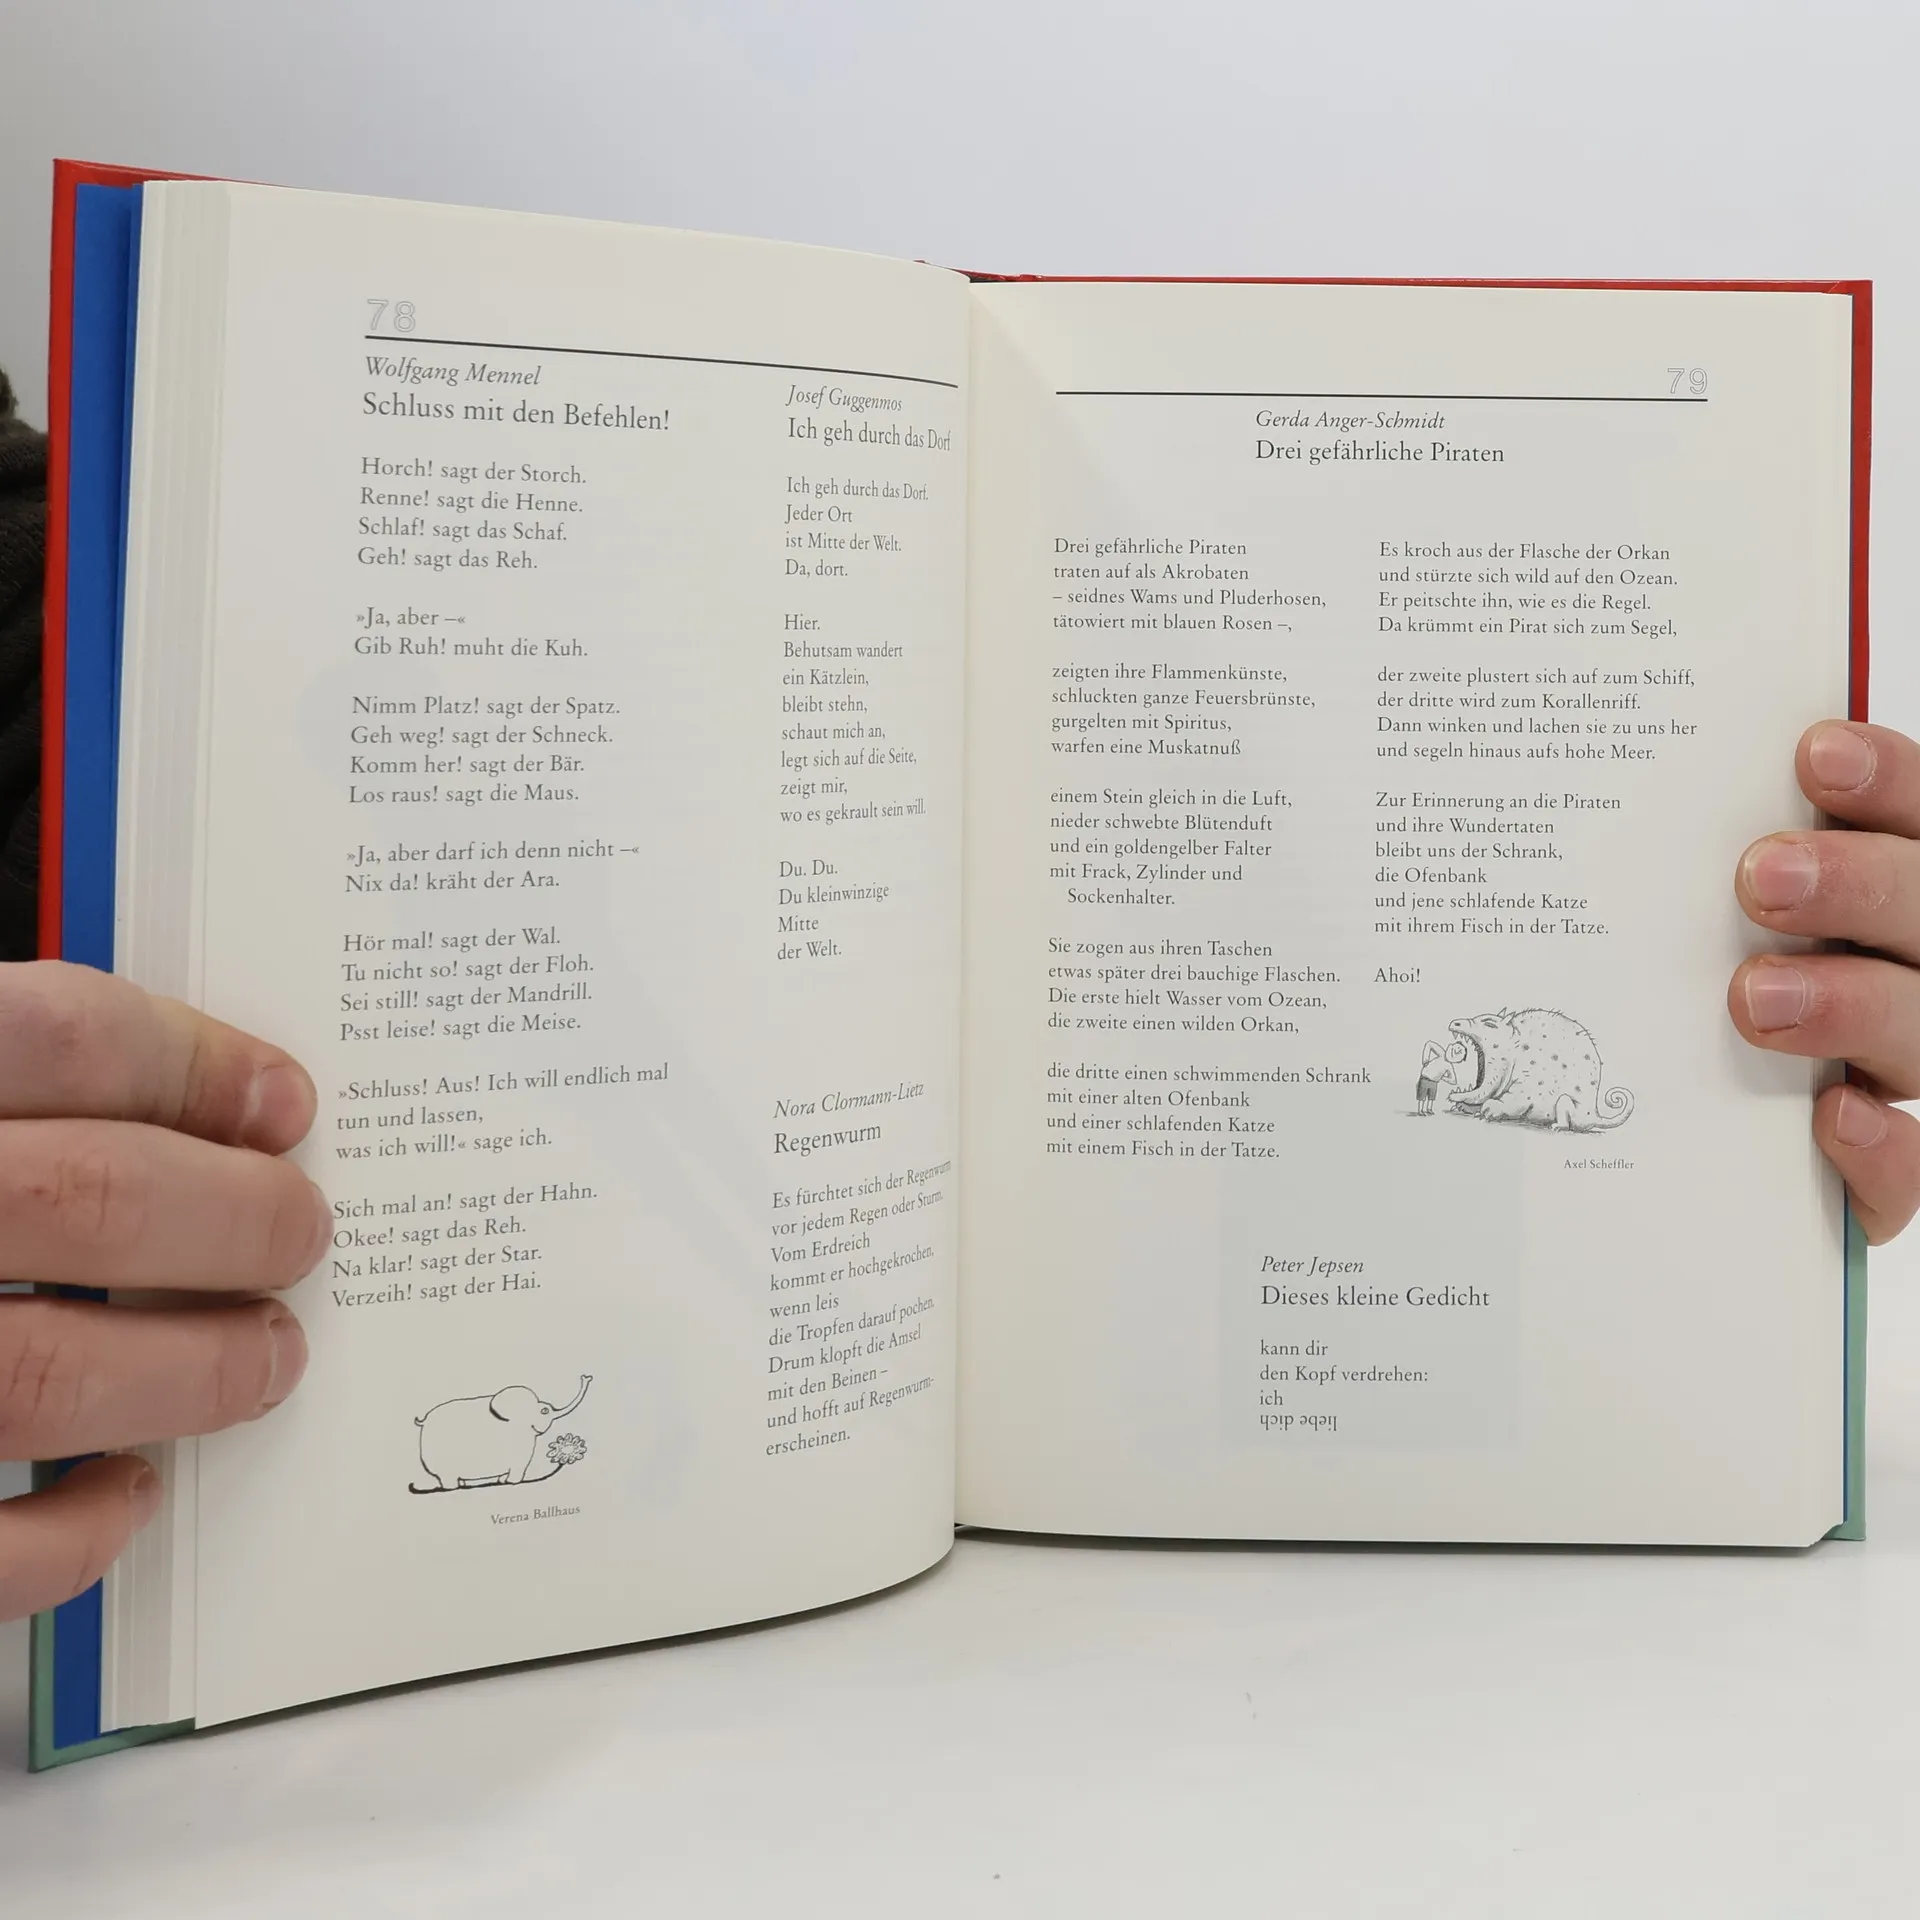 78
Wolfgang Mennel
Schluss mit den Befehlen!
Horch! sagt der Storch.
Renne! sagt die Henne.
Schlaf! sagt das Schaf.
Geh! sagt das Reh.
»Ja, aber –«
Gib Ruh! muht die Kuh.
Nimm Platz! sagt der Spatz.
Geh weg! sagt der Schneck.
Komm her! sagt der Bär.
Los raus! sagt die Maus.
»Ja, aber darf ich denn nicht –«
Nix da! kräht der Ara.
Hör mal! sagt der Wal.
Tu nicht so! sagt der Floh.
Sei still! sagt der Mandrill.
Psst leise! sagt die Meise.
»Schluss! Aus! Ich will endlich mal
tun und lassen,
was ich will!« sage ich.
Sich mal an! sagt der Hahn.
Okee! sagt das Reh.
Na klar! sagt der Star.
Verzeih! sagt der Hai.
Verena Ballhaus
Josef Guggenmos
Ich geh durch das Dorf
Ich geh durch das Dorf.
Jeder Ort
ist Mitte der Welt.
Da, dort.
Hier.
Behutsam wandert
ein Kätzlein,
bleibt stehn,
schaut mich an,
legt sich auf die Seite,
zeigt mir,
wo es gekrault sein will.
Du. Du.
Du kleinwinzige
Mitte
der Welt.
Nora Clormann-Lietz
Regenwurm
Es fürchtet sich der Regenwurm
vor jedem Regen oder Sturm.
Vom Erdreich
kommt er hochgekrochen,
wenn leis
die Tropfen darauf pochen.
Drum klopft die Amsel
mit den Beinen –
und hofft auf Regenwurm-
erscheinen.
79
Gerda Anger-Schmidt
Drei gefährliche Piraten
Drei gefährliche Piraten
traten auf als Akrobaten
– seidnes Wams und Pluderhosen,
tätowiert mit blauen Rosen –,
zeigten ihre Flammenkünste,
schluckten ganze Feuersbrünste,
gurgelten mit Spiritus,
warfen eine Muskatnuß
einem Stein gleich in die Luft,
nieder schwebte Blütenduft
und ein goldengelber Falter
mit Frack, Zylinder und
Sockenhalter.
Sie zogen aus ihren Taschen
etwas später drei bauchige Flaschen.
Die erste hielt Wasser vom Ozean,
die zweite einen wilden Orkan,
die dritte einen schwimmenden Schrank
mit einer alten Ofenbank
und einer schlafenden Katze
mit einem Fisch in der Tatze.
Es kroch aus der Flasche der Orkan
und stürzte sich wild auf den Ozean.
Er peitschte ihn, wie es die Regel.
Da krümmt ein Pirat sich zum Segel,
der zweite plustert sich auf zum Schiff,
der dritte wird zum Korallenriff.
Dann winken und lachen sie zu uns her
und segeln hinaus aufs hohe Meer.
Zur Erinnerung an die Piraten
und ihre Wundertaten
bleibt uns der Schrank,
die Ofenbank
und jene schlafende Katze
mit ihrem Fisch in der Tatze.
Ahoi!
Axel Scheffler
Peter Jepsen
Dieses kleine Gedicht
kann dir
den Kopf verdrehen:
ich
liebe dich